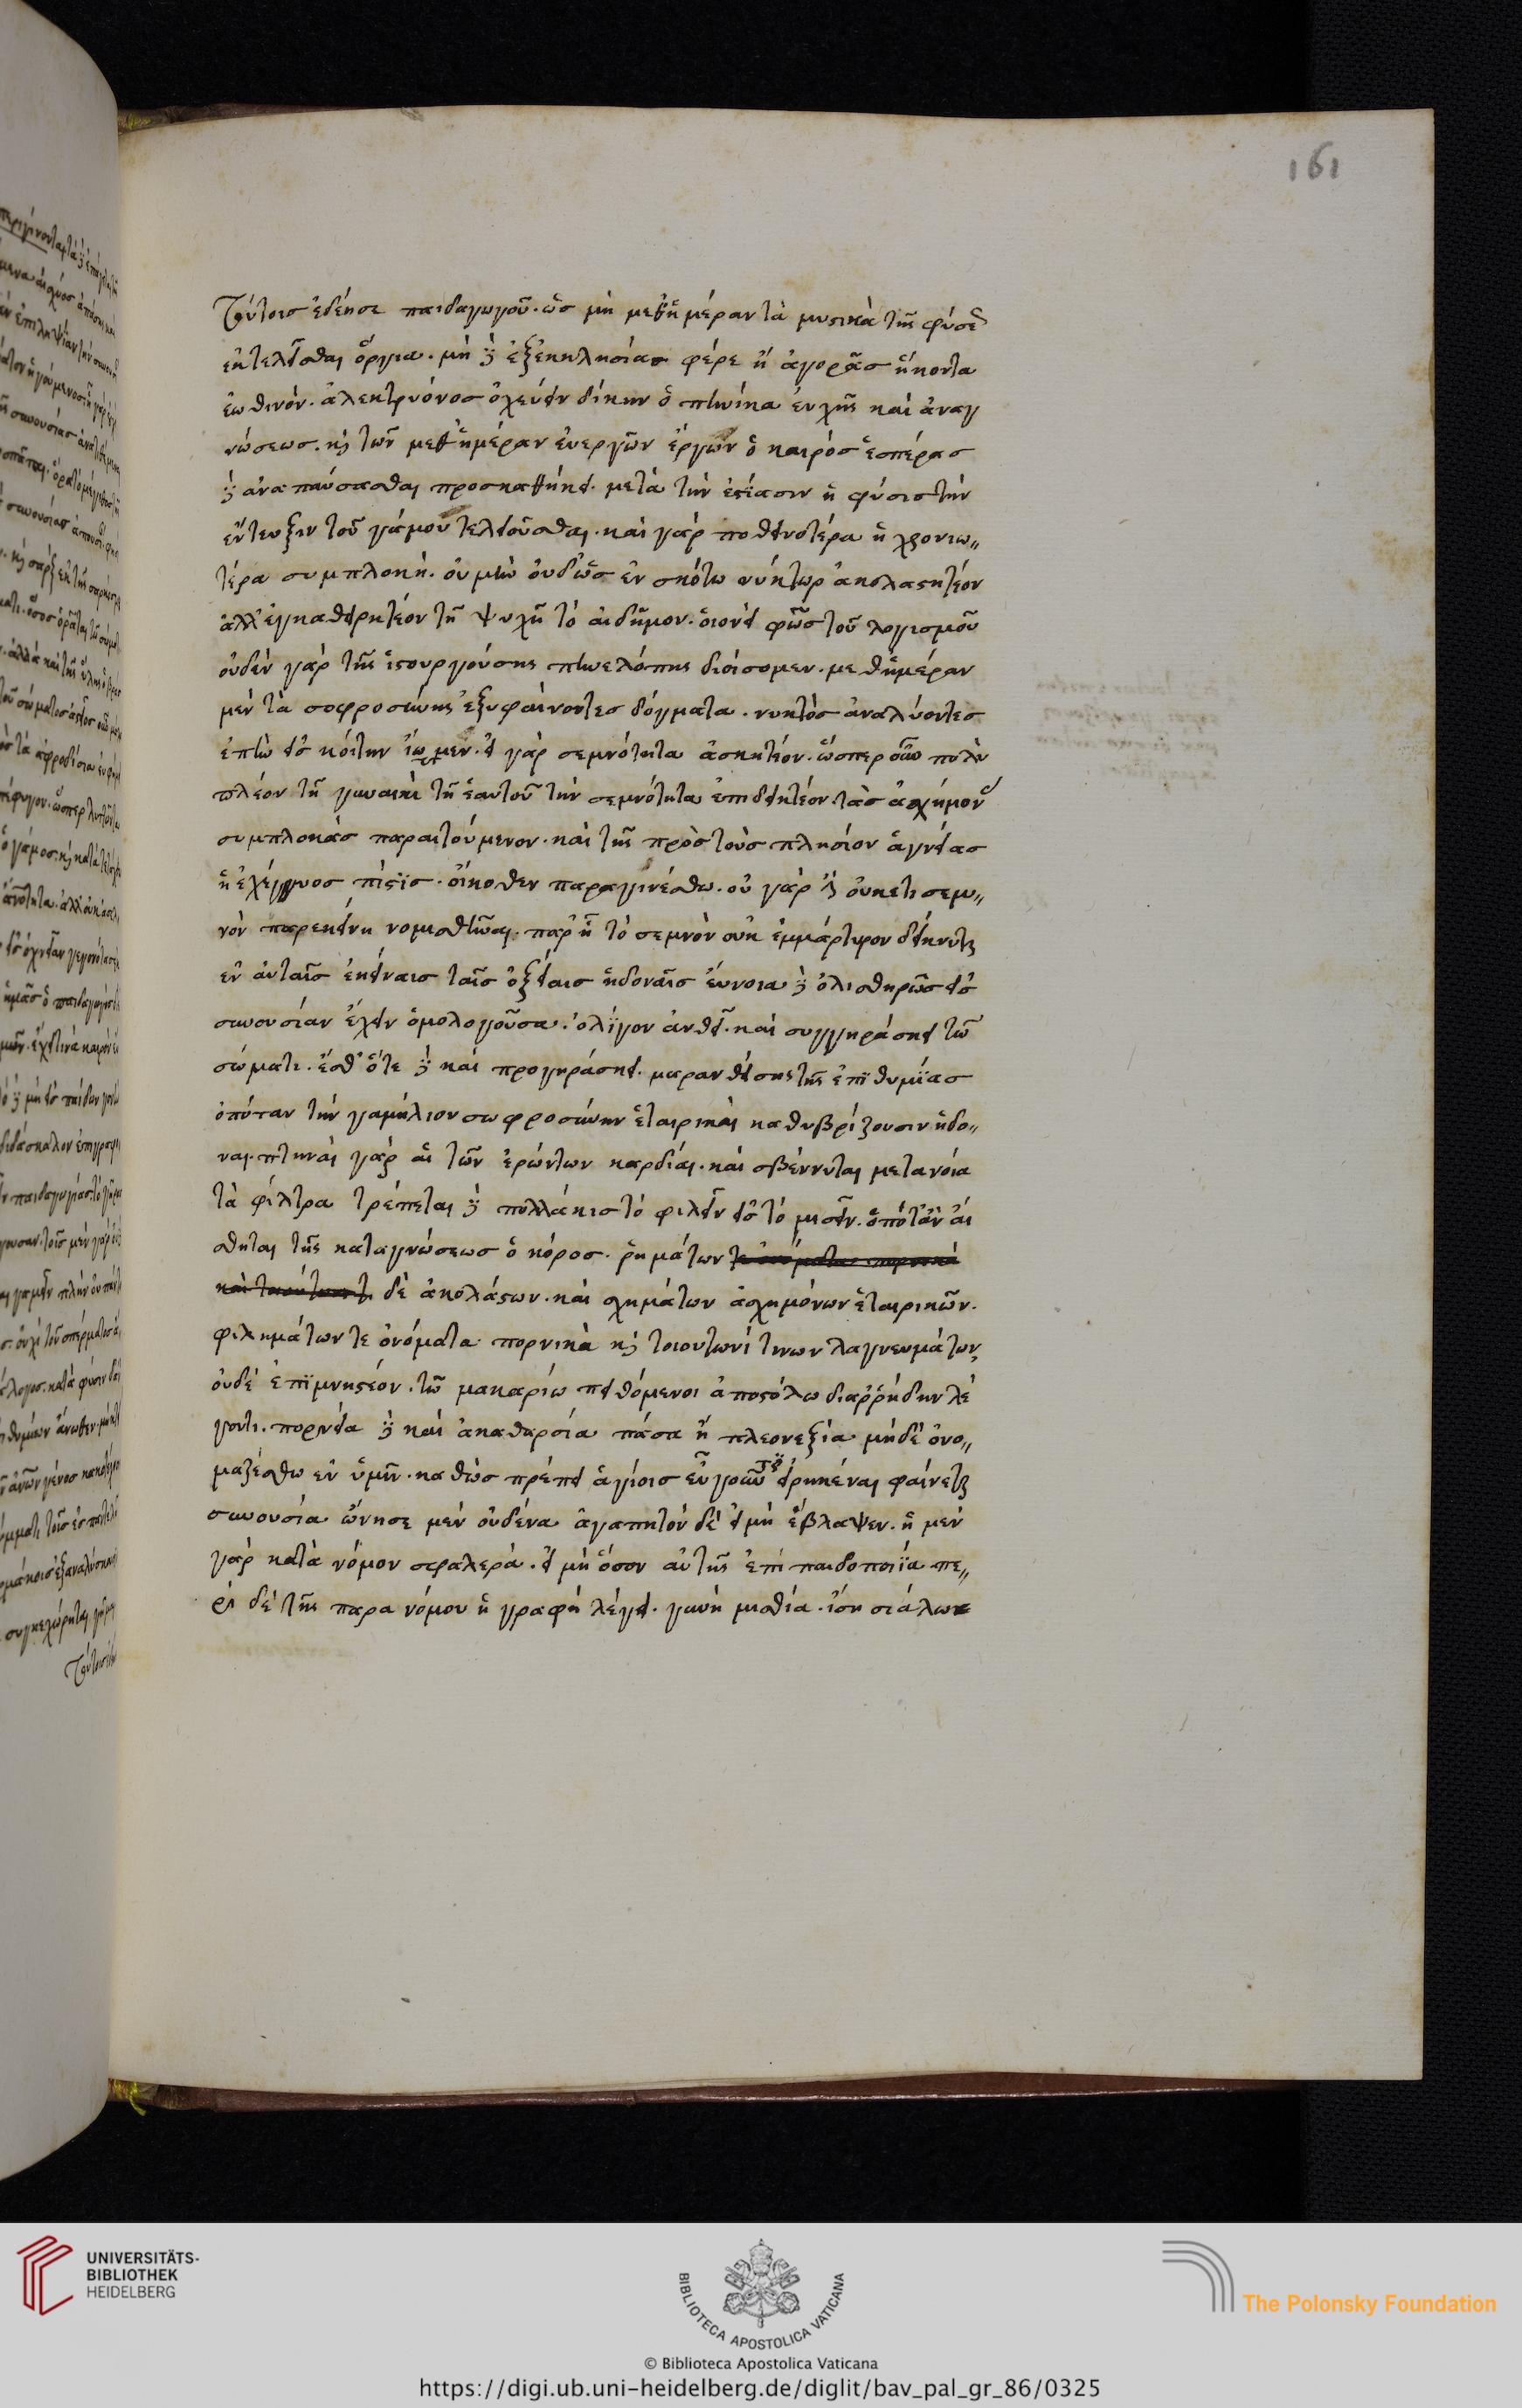 161
τούτοις ἐδέησε παιδαγωγοῦ. ὡς μὴ μεθ' ἡμέραν τὰ μυστικὰ τῆς φύσεως
ἐκτελεῖσθαι ὄργια. μὴ δὲ ἐξ ἐκκλησίας φέρε ἢ ἀγορᾶς ἥκοντα
ἑωθινὸν. ἀλεκτρυόνος ὀχεύειν δίκην ὁπηνίκα εὐχῆς καὶ ἀναγ
νώσεως. καὶ τῶν μεθ' ἡμέραν ἐνεργῶν ἔργων ὁ καιρὸς ἑσπέρας
δὲ ἀναπαύσασθαι προσκαθήκει. μετὰ τὴν ἑστίασιν ἡ φύσις τὴν
ἔντευξιν τοῦ γάμου τελειοῦσθαι. καὶ γὰρ ποθεινοτέρα ἡ χρονιω„
τέρα συμπλοκή. οὐ μὴν οὐδ' ὡς ἐν σκότω νύκτωρ ἀκολαστητέον
ἀλλ' ἐγκαθειρκτέον τῆ ψυχῆ τὸ αἰδῆμον. οἱονεὶ φῶς τοῦ λογισμοῦ
οὐδὲν γὰρ τῆς ἱστουργούσης πηνελόπης διοίσομεν. μεθ' ἡμέραν
μὲν τὰ σοφροσύνης ἐξυφαίνοντες δόγματα. νυκτὸς ἀναλύοντες
ἐπὴν εἰς κοίτην ἴωμεν. εἰ γὰρ σεμνότητα ἀσκητέον. ὥσπερ οὖν πολὺ
πλέον τῆ γυναικὶ τῆ ἑαυτοῦ τὴν σεμνότητα ἐπιδεικτέον τὰς ἀσχήμονας
συμπλοκὰς παραιτούμενον. καὶ τῆς πρὸς τοὺς πλησίον ἁγνείας
ἡ ἐχέγγυος πίστϊς. οἴκοθεν παραγινέσθω. οὐ γὰρ ἔστιν οὐκετι σεμ„
νὸν παρ' ἐκείνη νομισθῆναι. παρ' ἧ τὸ σεμνὸν οὐκ ἐμμάρτυρον δείκνυται
ἐν αὐταῖς ἐκείναις ταῖς ὀξείαις ἡδοναῖς εὔνοια δὲ ὀλισθηρῶς εἰς
συνουσίαν ἔχειν ὁμολογοῦσα. ὀλίγον ἀνθεῖ. καὶ συγγηράσκει τῶ
σώματι. ἔσθ' ὅτε δὲ καὶ προγηράσκει. μαρανθείσης τῆς ἐπϊθυμΐας
ὁπόταν τὴν γαμήλιον σωφροσύνην ἑταιρικαὶ καθυβρίζουσιν ἡδο„
ναι. πτηναὶ γὰρ αἱ τῶν ἐρώντων καρδίαι. καὶ σβέννυται μετανοία
τὰ φίλτρα τρέπεται δὲ πολλάκις τὸ φιλεῖν εἰς τὸ μισεῖν. ὁπόταν αἴ
σθηται τῆς καταγνώσεως ὁ κόρος. ῥημάτων τε ὀνόματα πορνικὰ
δὲ ἀκολάστων. καὶ σχημάτων ἀσχημόνων ἑταιρικῶν.
φιλημάτων τε ὀνόματα πορνικὰ καὶ τοιουτωνί τινων λαγνευμάτων
οὐδὲ ἐπϊμνηστέον. τῶ μακαρίω πειθόμενοι ἀποστόλω διαῤῥήδην λέ
γοντι. πορνεία δὲ καὶ ἀκαθαρσία πάσα ἢ πλεονεξία μηδὲ ὀνο„
μαζέσθω ἐν ὑμῖν. καθὼς πρέπει ἁγίοις εὖ γοῦν τις εἰρηκέναι φαίνεται
συνουσία ὤνησε μὲν οὐδένα ἀγαπητὸν δὲ εἰ μὴ ἔβλαψεν. ἡ μὲν
γὰρ κατὰ νόμον σφαλερὰ. εἰ μὴ ὅσον αὐτῆς ἐπὶ παιδοποιΐα πε„
ρὶ δὲ τῆς παρανόμου ἡ γραφὴ λέγει. γυνὴ μισθία. ἴση σιάλω
UNIVERSITÄTS-
BIBLIOTHEK
HEIDELBERG
BIBLIOTECA APOSTOLICA VATICANA
The Polonsky Foundation
© Biblioteca Apostolica Vaticana
https://digi.ub.uni-heidelberg.de/diglit/bav_pal_gr_86/0325